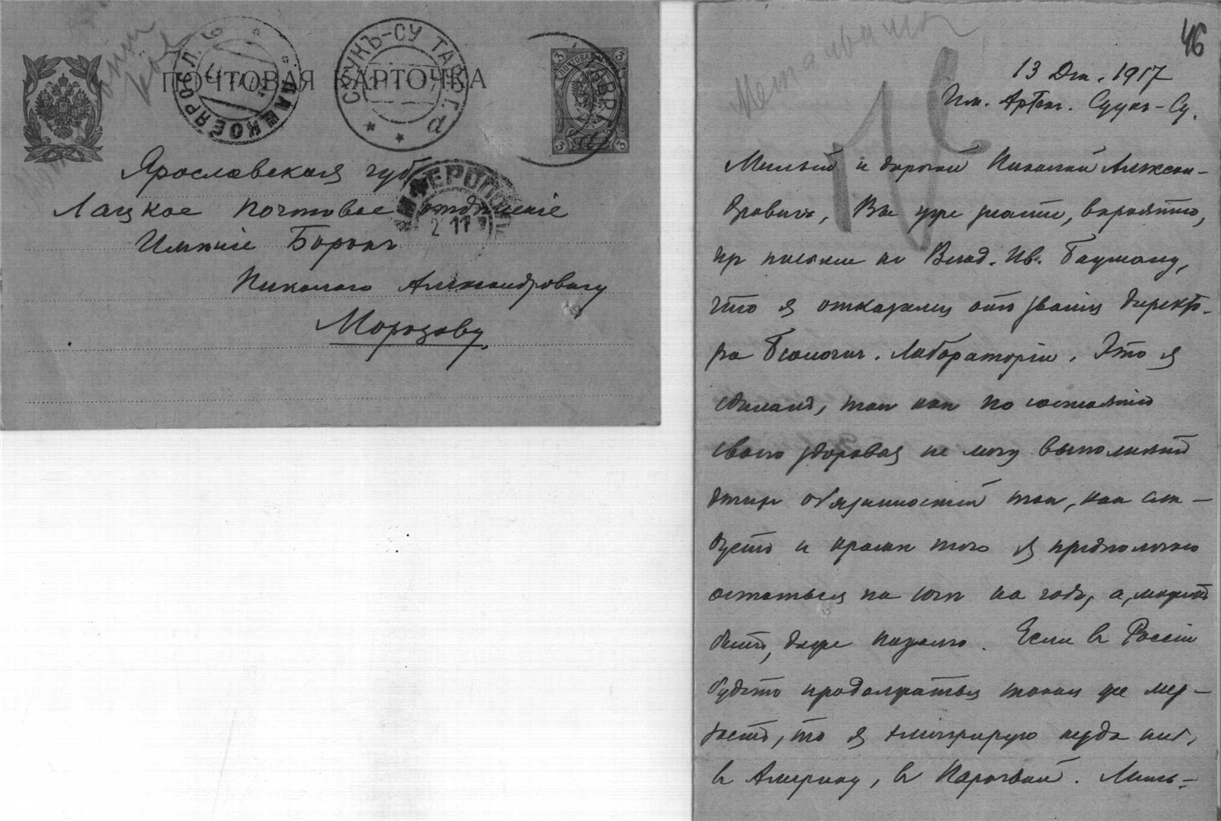 ПОЧТОВАЯ КАРТОЧКА
СУУКЪ-СУ ТАВР. Г.
Ярославская губ.
Лацкое почтовое отдѣленіе
Имѣніе Борокъ
Николаю Александровичу
Морозову.
46
13 Дек. 1917
Им. Артек. Суукъ-Су.
Милый и дорогой Николай Алексан-
дровичъ, Вы уже знаете, вѣроятно,
по письму къ Влад. Ив. Бауману,
что я отказался отъ званія директо-
ра Біологич. Лабораторіи. Это я
сдѣлалъ, такъ какъ по состоянію
своего здоровья не могу выполнять
этихъ обязанностей такъ, какъ слѣ-
дуетъ и кромѣ того я предполагаю
остаться на югѣ на годъ, а, можетъ
быть, даже надолго. Если въ Россіи
будетъ продолжаться такая же мер-
зость, то я эмигрирую куда ниб.
въ Америку, въ Парагвай. Лишь-